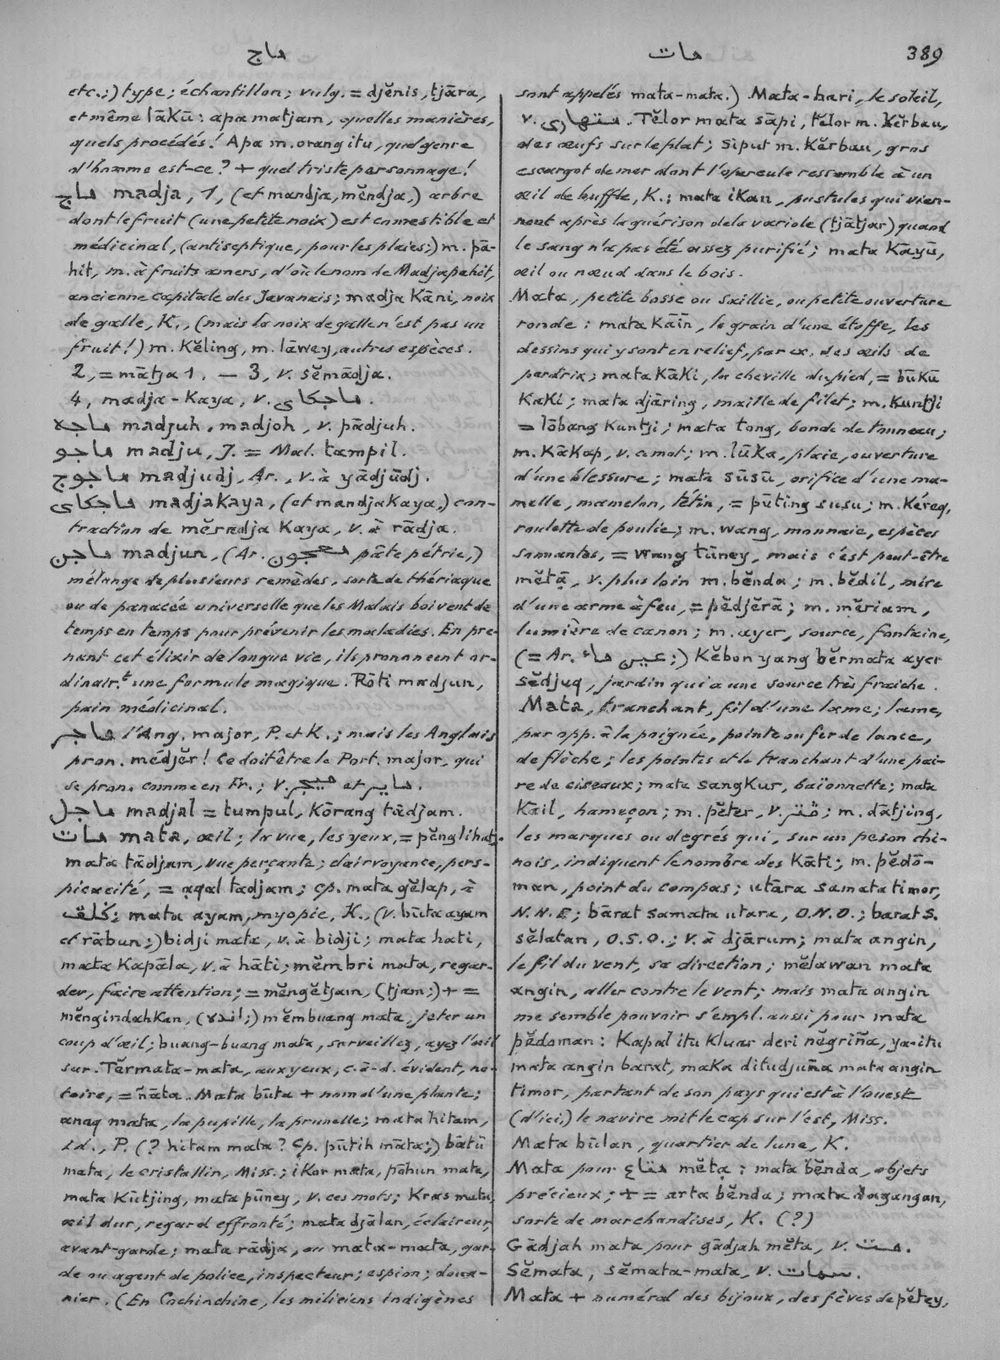 ماج
مات
389
etc.;) type; échantillon; vulg. = djĕnis, tjāra,
et même lākū: apa matjam, quelles manières,
quels procédés! Apa m. orang itu, quel genre
d'homme est-ce? + quel triste personnage!
ماج madja, 1, (et mandja, mĕndja,) arbre
dont le fruit (une petite noix) est comestible et
médicinal, (antiseptique, pour les plaies;) m. pā-
hit, m. à fruits amers, d'où le nom de Madjapahit,
ancienne capitale des Javanais; madja Kāni, noix
de galle, K., (mais la noix de galle n'est pas un
fruit!) m. Kĕling, m. lāwey, autres espèces.
2, = mātja 1. — 3, v. sĕmādja.
4, madja-Kaya, v. ماجكاي.
ماجه madjuh, madjoh, v. pādjuh.
ماجو madju, J. = Mal. tampil.
ماجوج madjudj, Ar., v. à yādjūdj.
ماجكاي madjakaya, (et mandjaKaya,) con-
traction de mĕradja Kaya, v. à rādja.
ماجن madjun, (Ar. معجون pâte pétrie,)
mélange de plusieurs remèdes, sorte de thériaque
ou de panacée universelle que les Malais boivent de
temps en temps pour prévenir les maladies. En pre-
nant cet élixir de longue vie, ils prononcent or-
dinair.t une formule magique. Rōti madjun,
pain médicinal.
ماجر l'Ang. major, P. et K.; mais les Anglais
pron. mĕdjĕr! Ce doit être le Port. major, qui
se pron. comme en Fr.; v. ميجر et ماير.
ماجل madjal = tumpul, Kōrang tādjam.
مات mata, œil; la vue, les yeux, = pĕnglihat;
mata tādjam, vue perçante; clairvoyance, pers-
picacité, = aqal tadjam; cp. mata gĕlap, à
ڬلڤ; mata ayam, myopie, K., (v. būta ayam
et rābun;) bidji mata, v. à bidji; mata hati,
mata Kapāla, v. à hāti; mĕmbri mata, regar-
der, faire attention; = mĕngĕtjam, (tjam;) + =
mĕngindahkan, (اندە;) mĕmbuang mata, jeter un
coup d'œil; buang-buang mata, surveillez, ayez l'œil
sur. Tĕrmata-mata, aux yeux, c.-à-d. évident, no-
toire, = ñāta. Mata būta + nom d'une plante;
anaq mata, la pupille, la prunelle; mata hitam,
id., P. (? hitam mata? Cp. pūtih māta;) bātū
mata, le cristallin, Miss.; iKor mata, pāhun mata,
mata Kūtjing, mata pūney, v. ces mots; Kras mata,
œil dur, regard effronté; mata djālan, éclaireur,
avant-garde; mata rādja, ou mata-mata, gar-
de ou agent de police, inspecteur; espion; doua-
nier. (En Cochinchine, les miliciens indigènes
sont appelés mata-mata.) Mata-hari, le soleil,
v. متهاري. Tĕlor mata sāpi, tĕlor m. Kĕrbau,
des œufs sur le plat; siput m. Kĕrbau, gros
escargot de mer dont l'opercule ressemble à un
œil de buffle, K.; mata iKan, pustules qui vien-
nent après la guérison de la variole (tjātjar) quand
le sang n'a pas été assez purifié; mata Kāyū,
œil ou nœud dans le bois.
Mata, petite bosse ou saillie, ou petite ouverture
ronde: mata Kāïn, le grain d'une étoffe, les
dessins qui y sont en relief, par ex. des œils de
perdrix; mata KāKi, la cheville du pied, = būKū
KaKi; mata djāring, maille de filet; m. Kuntji
= lōbang Kuntji; mata tong, bonde de tonneau;
m. KāKap, v. ce mot; m. lūKa, plaie, ouverture
d'une blessure; mata sūsū, orifice d'une ma-
melle, mamelon, tétin, = pūting susu; m. Kéreq,
roulette de poulie; m. wang, monnaie, espèces
sonnantes, = wang tūney, mais c'est peut-être
mĕtạ, v. plus loin m. bĕnda; m. bĕdil, mire
d'une arme à feu, = pĕdjĕrā; m. mĕriam,
lumière de canon; m. ayer, source, fontaine,
(= Ar. عين ماء;) Kĕbon yang bĕrmata ayer
sĕdjuq, jardin qui a une source très fraîche.
Mata, tranchant, fil d'une lame; lame,
par opp. à la poignée, pointe ou fer de lance,
de flèche; les pointes et le tranchant d'une pai-
re de ciseaux; mata sangKur, baïonnette; mata
Kāil, hameçon; m. pĕter, v. ڤتر; m. dātjing,
les marques ou degrés qui, sur un peson chi-
nois, indiquent le nombre des Kāti; m. pĕdō-
man, point du compas; utāra samata timor,
N.N.E; bārat samata utara, O.N.O.; barat s.
sĕlatan, O.S.O.; v. à djārum; mata angin,
le fil du vent, sa direction; mĕlawan mata
angin, aller contre le vent; mais mata angin
me semble pouvoir s'empl. aussi pour mata
pĕdoman: Kapal itu Kluar deri nĕgriña, ya-itu
mata angin barat, maKa ditudjuña mata angin
timor, partant de son pays qui est à l'ouest
(d'ici,) le navire mit le cap sur l'est, Miss.
Mata būlan, quartier de lune, K.
Mata pour متاع mĕtạ: mata bĕnda, objets
précieux; + = arta bĕnda; mata dagangan,
sorte de marchandises, K. (?)
Gādjah mata pour gādjah mĕta, v. مت.
Sĕmata, sĕmata-mata, v. سمات.
Mata + numéral des bijoux, des fèves de pĕtey,